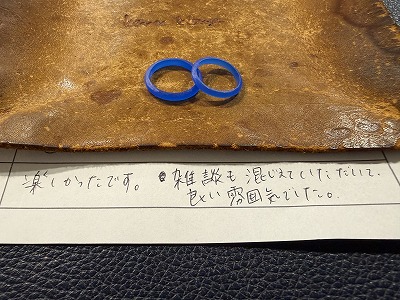 楽しかったです。 雑談も混じえていただいて、
良い雰囲気でした。